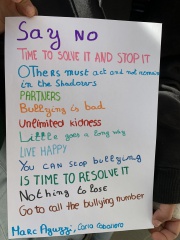 Say NO
TIME TO SOLVE IT AND STOP IT
Others must act and not remain
in the Shadows
PARTNERS
Bullying is bad
Unlimited kidness
Little goes a long way
LIVE HAPPY
You can stop bullying
IS TIME TO RESOLVE IT
Nothing to lose
Go to call the bullying number
Marc Aguzzi, Carla Cabanero